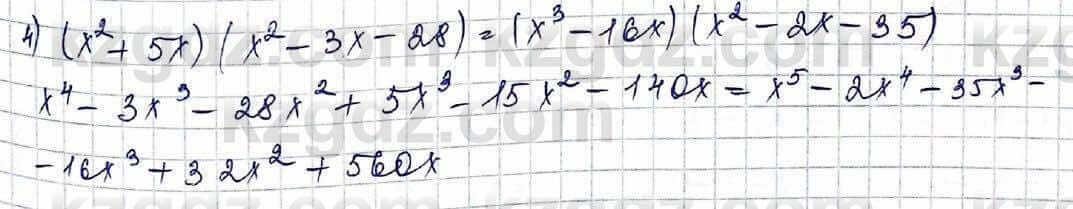 4) (x² + 5x) (x² - 3x - 28) = (x³ - 16x) (x² - 2x - 35)
x⁴ - 3x³ - 28x² + 5x³ - 15x² - 140x = x⁵ - 2x⁴ - 35x³ -
- 16x³ + 32x² + 560x
kzgdz.com